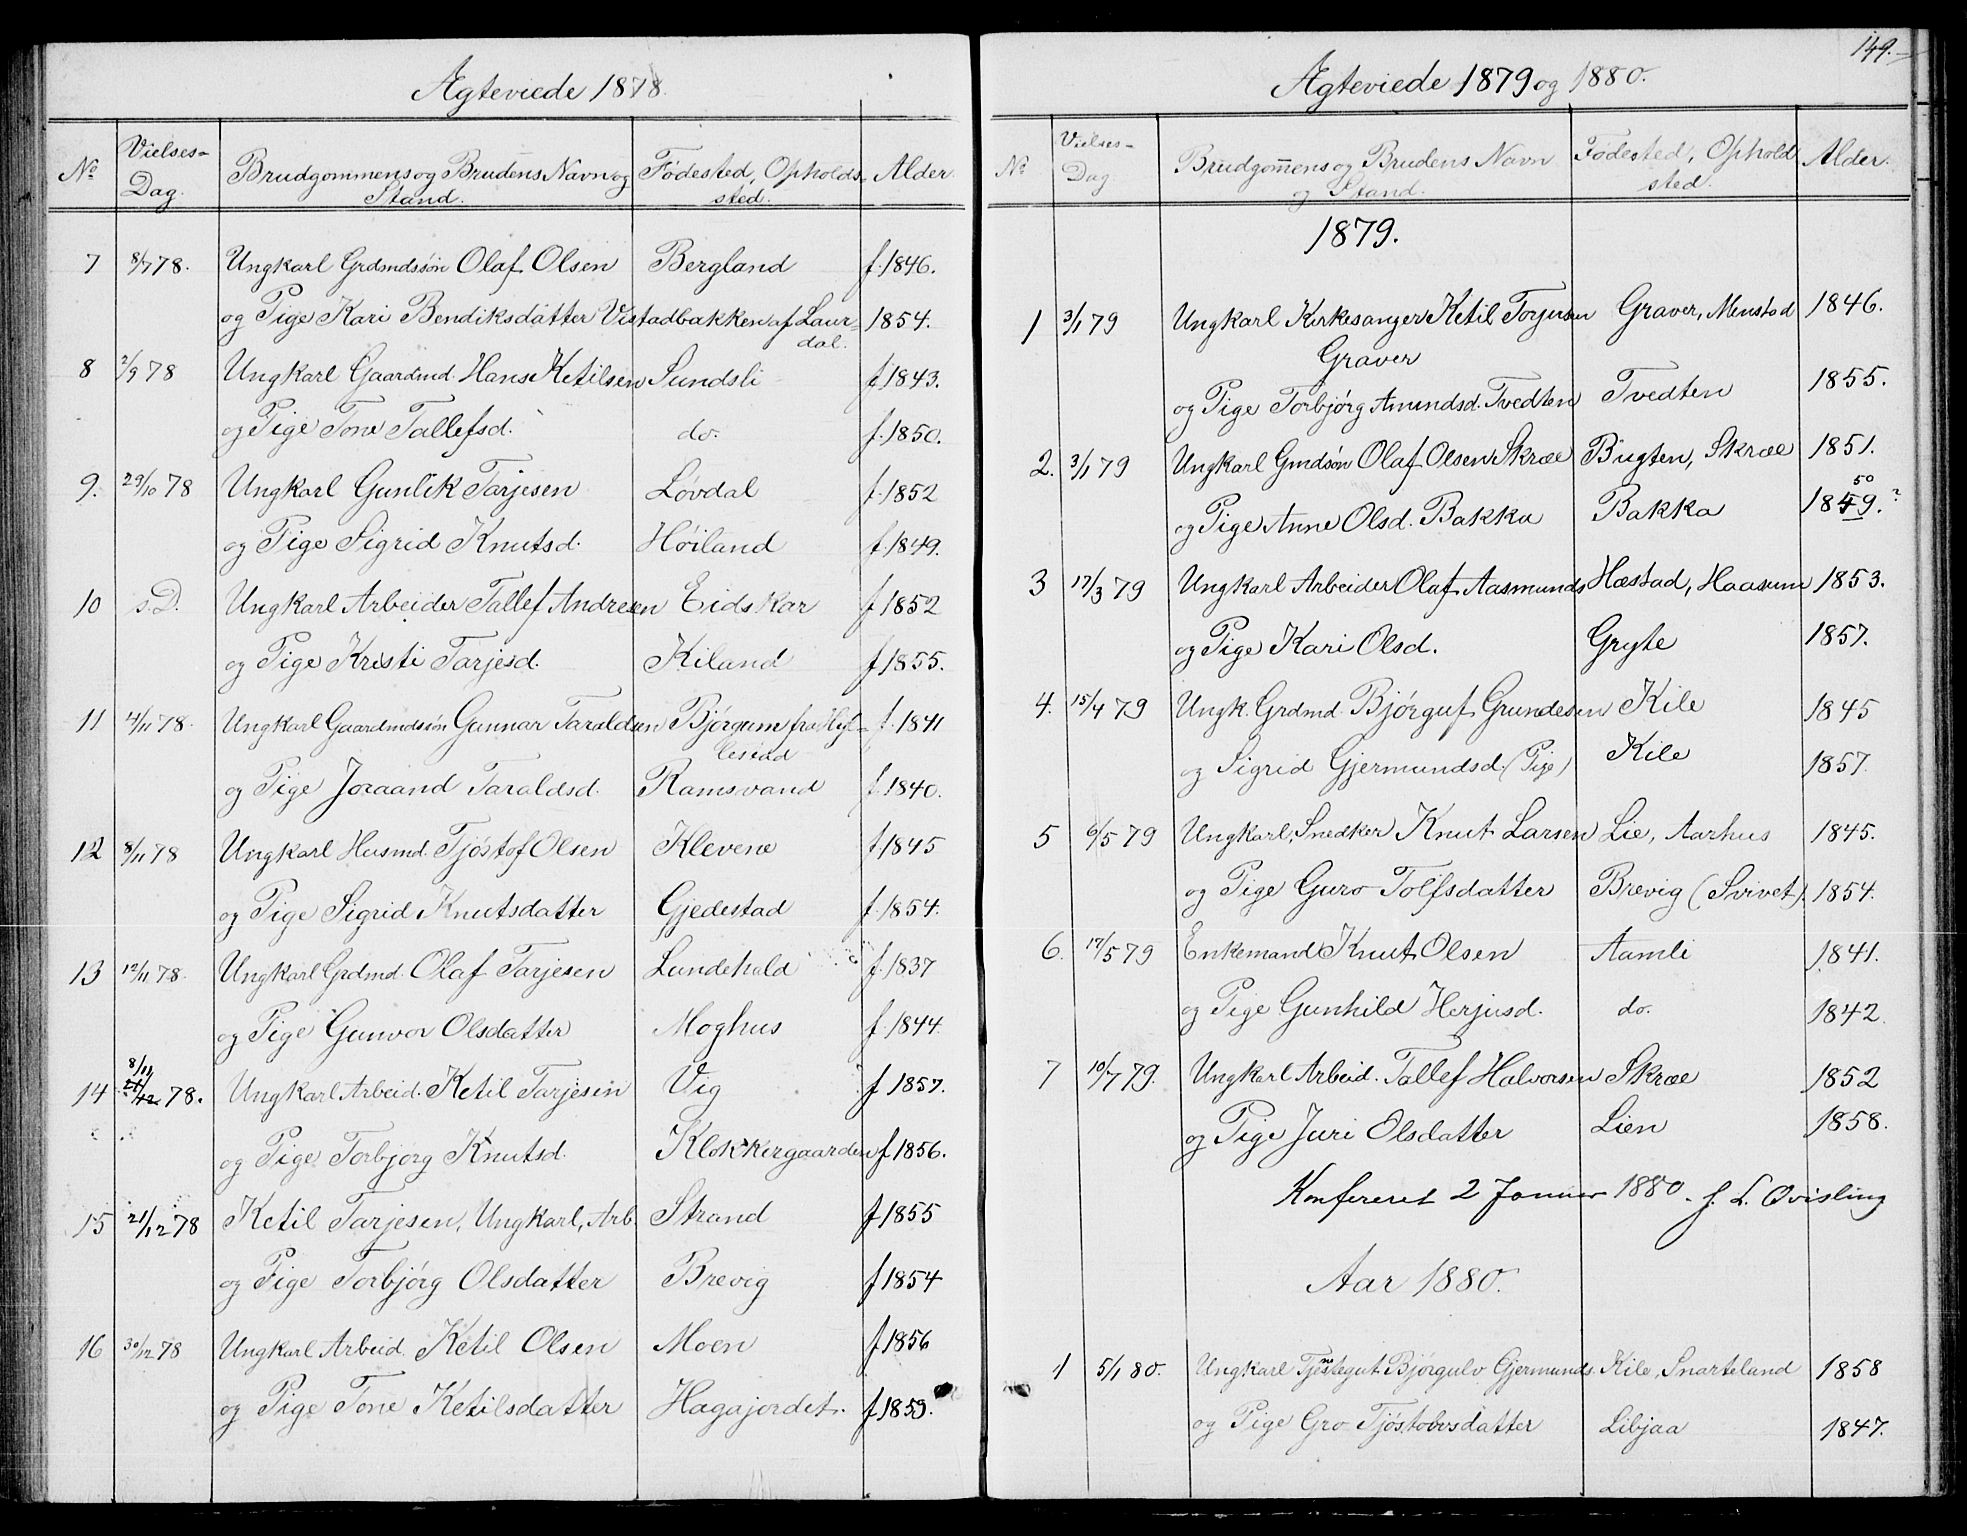 Ægteviede 1878.
No Vielses- Dag. Brudgommens og Brudens Navn og Stand. Fødested, Opholds- sted. Alder.
7 8/7 78. Ungkarl Grdmdssøn Olaf Olsen Bergland f. 1846.
og Pige Kari Bendiksdatter Vistadbakken af Laur- 1854.
dal.
8 2/9 78 Ungkarl Gaardmd. Hans Ketilsen Sundsli f. 1843.
og Pige Tone Tallefsd. do. f. 1850.
9. 29/10 78 Ungkarl Gunlik Tarjesen Løvdal f. 1852
og Pige Sigrid Knutsd. Høiland f. 1849.
10 s.D. Ungkarl Arbeider Tallef Andresen Eidskar f 1852
og Pige Kristi Tarjesd. Kiland f 1855.
11 4/11 78. Ungkarl Gaardmdssøn Gunnar Taraldsen Bjørgum fra Hyl- f. 1841
lestad
og Pige Joraand Taraldsd. Ramsvand f. 1840.
12 8/11 78 Ungkarl Husmd. Tjøstof Olsen Klevene f 1845
og Pige Sigrid Knutsdatter Gjedestad f. 1854.
13 12/11 78. Ungkarl Grdmd. Olaf Tarjesen Lundehald f. 1837
og Pige Gunvor Olsdatter Moghus f. 1844.
8/11
14 21/12 78. Ungkarl Arbeid. Ketil Tarjesen Vig f 1857.
og Pige Torbjørg Knutsd. Klokkergaarden f 1856.
15 21/12 78 Ketil Tarjesen, Ungkarl, Arb. Strand f 1855
og Pige Torbjørg Olsdatter Brevig f 1854
16 30/12 78 Ungkarl Arbeid. Ketil Olsen Moen f 1856
og Pige Tone Ketilsdatter Hagajordet. f 1859.
149.
Ægteviede 1879 og 1880.
No Vielses- Dag Brudgom̅ens og Brudens Navn og Stand. Fødested, Ophold sted. Alder.
1879.
1 3/1 79 Ungkarl Kirkesanger Ketil Torjusen Graver, Menstad 1846.
Graver
og Pige Torbjørg Amundsd. Tvedten Tvedten 1855.
2. 3/1 79 Ungkarl Gmdsøn Olaf Olsen Skræe Bugten, Skræe 1851.
50
og Pige Anne Olsd. Bakka Bakka 1849.?
3 17/3 79 Ungkarl Arbeider Olaf Aasmunds Hæstad, Haasum 1853.
og Pige Kari Olsd. Gryte 1857.
4. 15/4 79 Ungk. Grdmd. Bjørguf Grundesen Kile 1845
og Sigrid Gjermundsd. (Pige) Kile 1857.
5 6/5 79 Ungkarl, Snedker Knut Larsen Lie, Aarhus 1845.
og Pige Guro Tolfsdatter Brevig (Svivet) 1854.
6. 17/5 79 Enkemand Knut Olsen Aamli 1841.
og Pige Gunhild Herjusd. do. 1842.
7 10/7 79. Ungkarl Arbeid. Tallef Halvorsen Skræe 1852
og Pige Juri Olsdatter Lien 1858.
Konfereret 2 Januar 1880. J. L. Qvisling
Aar 1880.
1 5/1 80. Ungkarl Tjenstegut Bjørgulv Gjermunds. Kile, Snarteland 1858
og Pige Gro Tjøstolvsdatter Libjaa 1847.